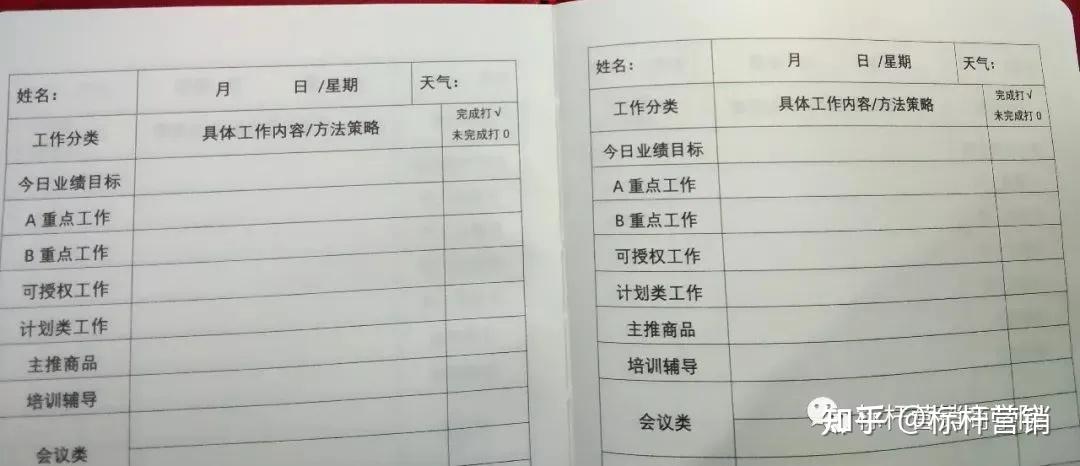 姓名： 月 日 /星期 天气：
工作分类 具体工作内容/方法策略 完成打√
未完成打 0
今日业绩目标
A 重点工作
B 重点工作
可授权工作
计划类工作
主推商品
培训辅导
会议类
姓名： 月 日 /星期 天气：
工作分类 具体工作内容/方法策略 完成打√
未完成打 0
今日业绩目标
A 重点工作
B 重点工作
可授权工作
计划类工作
主推商品
培训辅导
会议类
知乎 @标杆营销